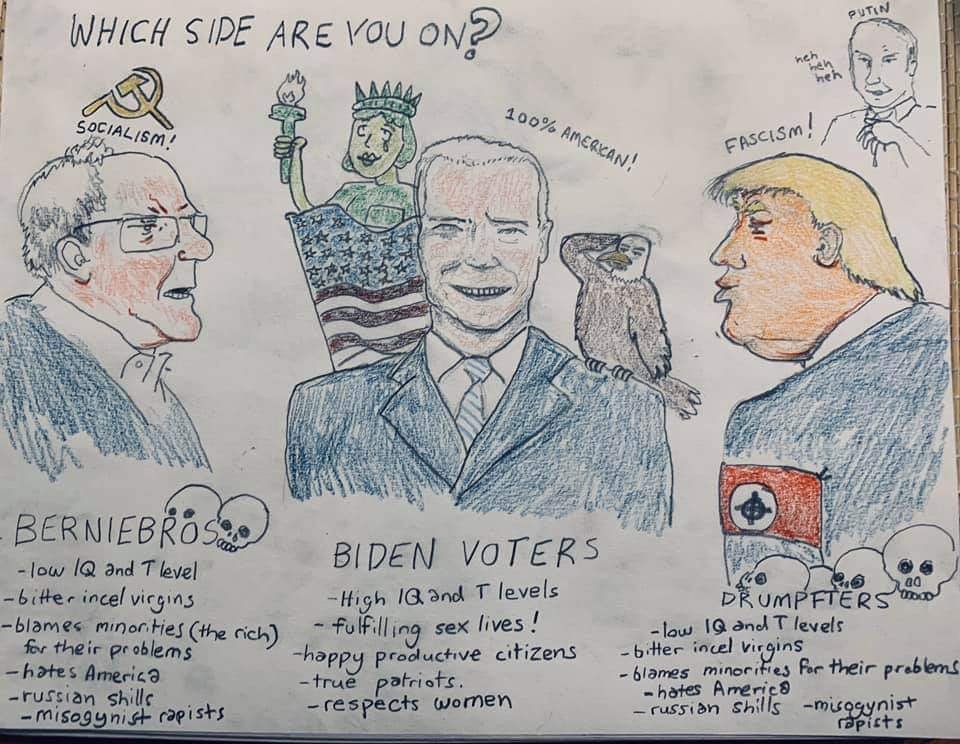 WHICH SIDE ARE YOU ON?
PUTIN
heh
heh
heh
SOCIALISM!
100% AMERICAN!
FASCISM!
BERNIEBROS
-low IQ and T level
-bitter incel virgins
-blames minorities (the rich)
for their problems
-hates America
-russian shills
-misogynist rapists
BIDEN VOTERS
-High IQ and T levels
-fulfilling sex lives!
-happy productive citizens
-true patriots.
-respects women
DRUMPFTERS
-low IQ and T levels
-bitter incel virgins
-blames minorities for their problems
-hates America
-russian shills -misogynist
rapists